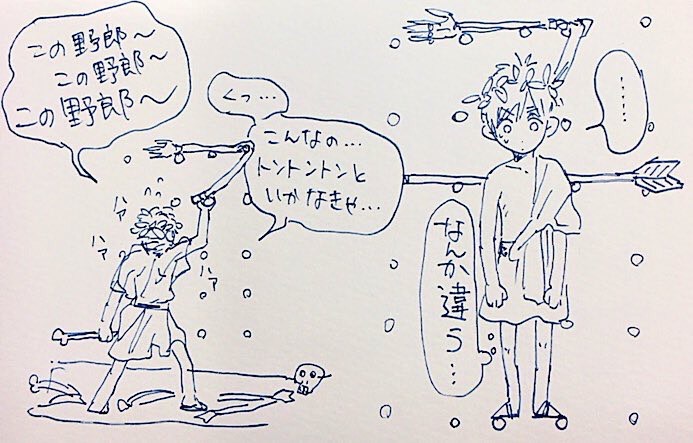 この野郎〜
この野郎〜
この野郎〜
くっ…
こんなの…
トントントンと
いかなきゃ…
ハァ
ハァ
ハァ
……
なんか違う…